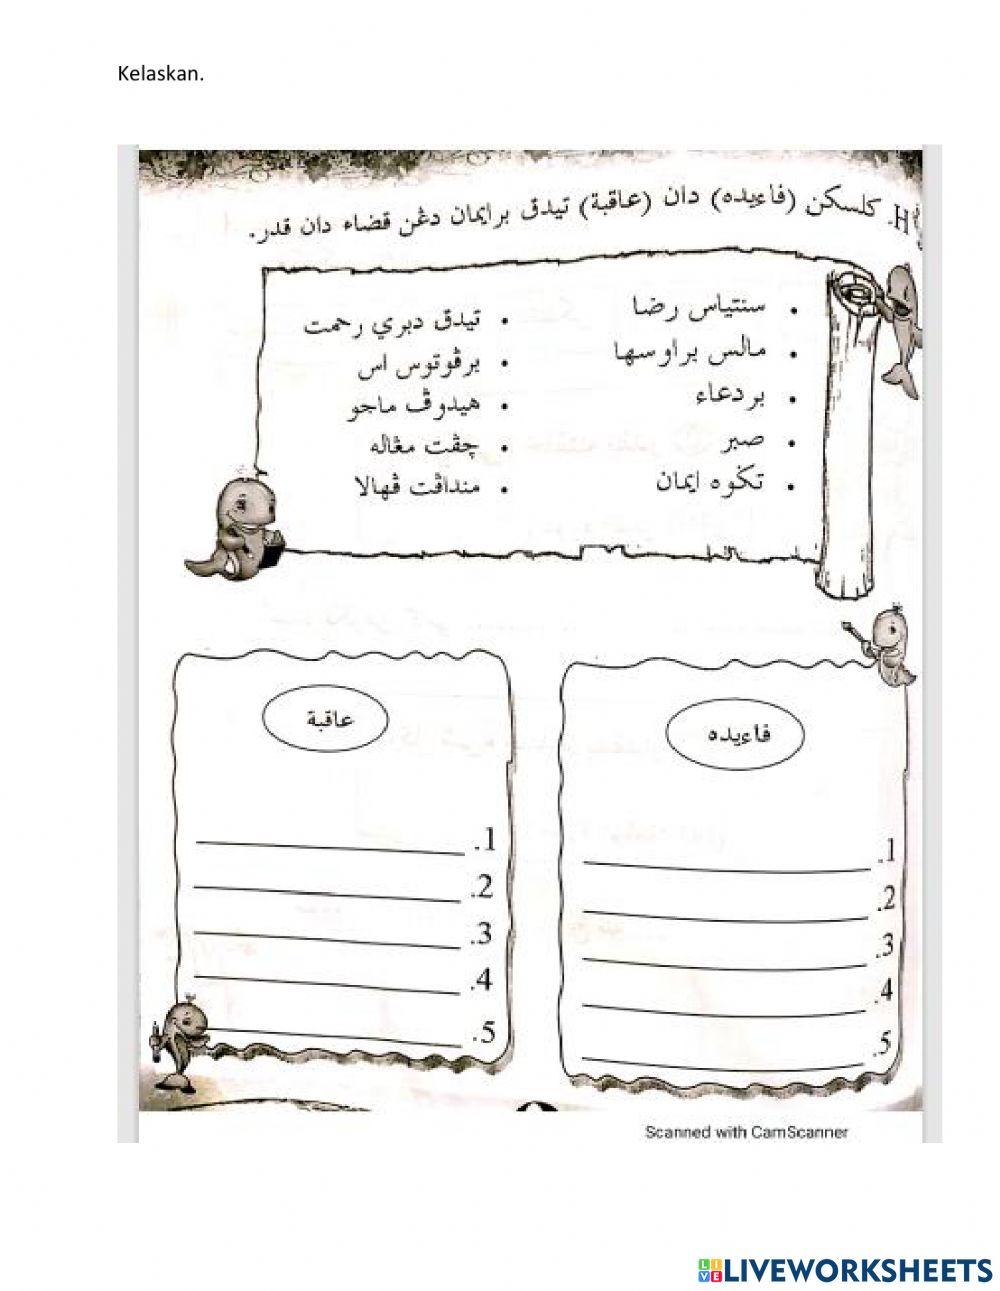 Kelaskan.
H. کلسکن (فاءيده) دان (عاقبة) تيدق برايمان دڠن قضاء دان قدر.
• سنتياس رضا
• مالس براوسها
• بردعاء
• صبر
• تکوه ايمان
• تيدق دبري رحمت
• برڤوتوس اس
• هيدوڤ ماجو
• چڤت مڠاله
• منداڤت ڤهالا
فاءيده
1.
2.
3.
4.
5.
عاقبة
1.
2.
3.
4.
5.
Scanned with CamScanner
LIVE LIVEWORKSHEETS